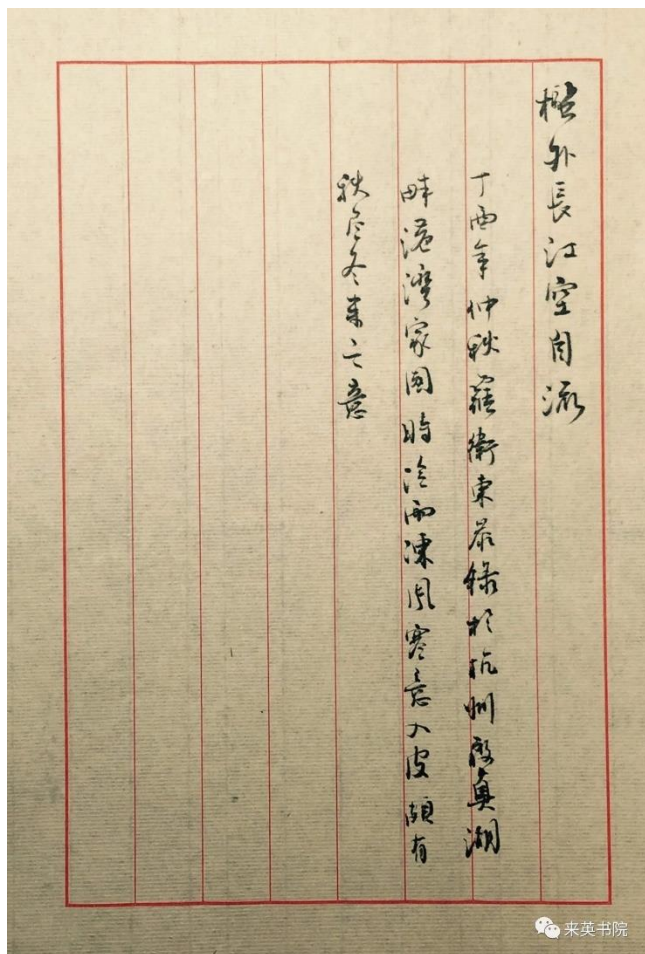 檻外長江空自流
丁酉年仲秋羅衛東恭錄於杭州殿真湖
畔港灣家園時冷雨凍風寒意入皮頗有
秋尽冬来之意
来英书院